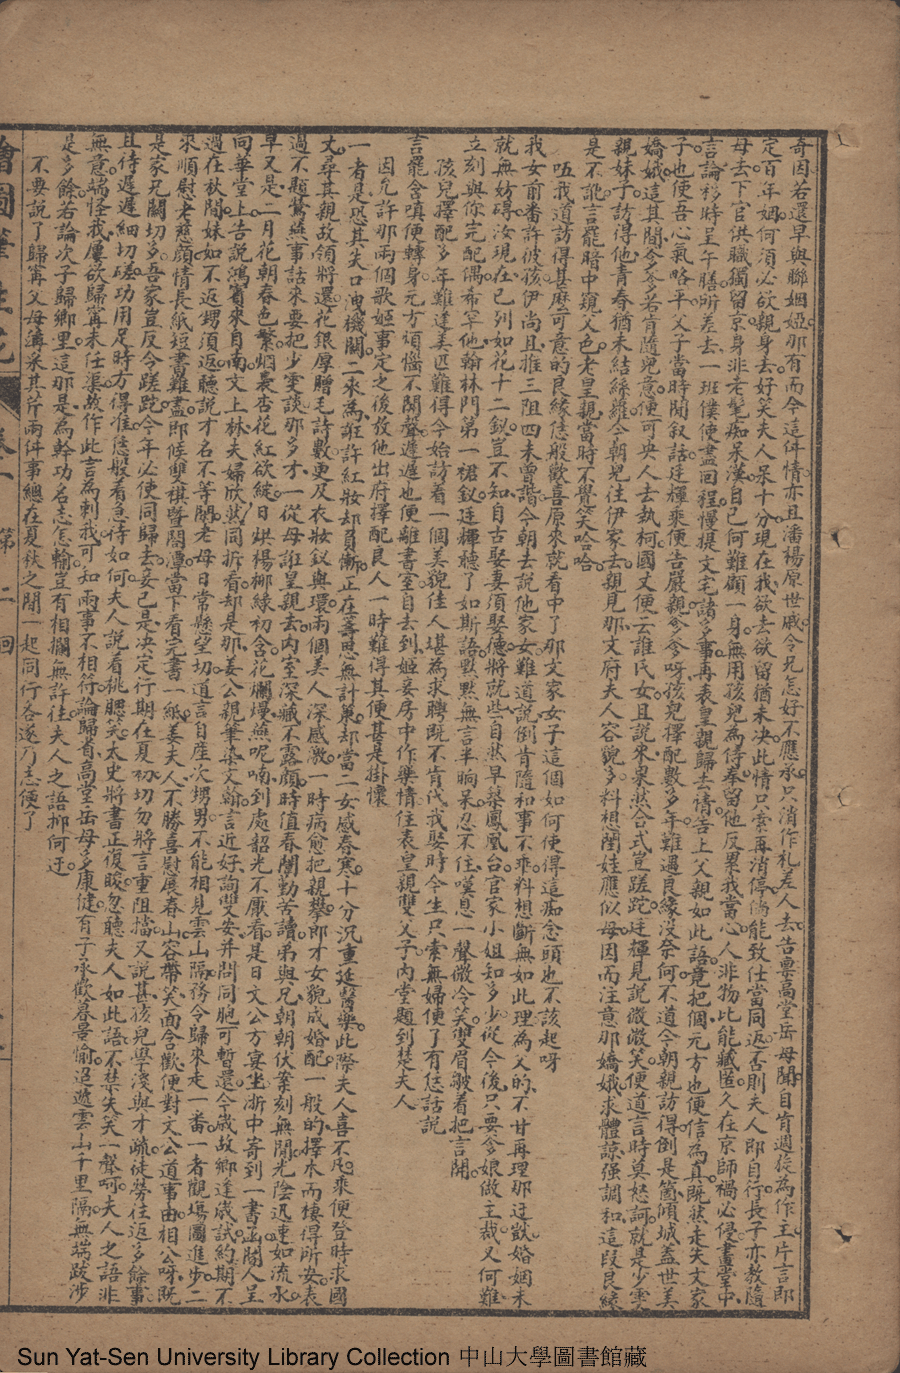 奇因若還早與聯姻婭那有而今這件情亦且潘楊原世戚令兄怎好不應承只消作札差人去告稟高堂岳母聞自肯週從為作主片言即
定百年姻何須必欲親身去好笑夫人呆十分現在我欲去欲留猶未决此情只索再消停倘能致仕當同返否則夫人即自行長子亦教隨
母去下官供職獨留京身非老髦痴呆漢自已何難顧一身無用孩兒為侍奉留他反累我當心人非物此能藏匿久在京師禍必侵畫堂中
言論移時呈午膳所差去一班僕使盡回程慢提文宅諸多事再表皇親歸去情告上父親如此語竟把個元方也便信為真既然走失文家
子也便吾心氣略平父子當時閒叙話廷輝乘便告嚴親爹爹呀孩兒擇配數多年難遇良緣沒奈何不道今朝親訪得倒是箇傾城蓋世美
嬌娥這其間爹爹若肯隨兒意便可央人去執柯國丈便云誰氏女且說來果然合式豈蹉跎廷輝見說微微笑便道言時莫怒訶就是少雯
親妹子訪得他青春猶未結絲蘿今朝兒往伊家去親見那文府夫人容貌多料想閨娃應似母因而注意那嬌娥求體諒强調和這段良緣
是不訛言罷暗中窺父色老皇親當時不覺笑哈哈
吓我道訪得甚麼可意的良緣恁般歡喜原來就看中了那文家女子這個如何使得這痴念頭也不該起呀
我女前番許彼孩伊尚且推三阻四未曾諧今朝去說他家女難道說倒肯隨和事不乖料想斷無如此理為父的不甘再理那迂獃婚姻未
就無妨碍汝現在已列如花十二釵豈不知自古娶妻須娶德將就些自然早築鳳凰台官家小姐知多少從今後只要爹娘做主裁又何難
立刻與你完配偶希罕他翰林門第一裙釵廷輝聽了如斯語黙黙無言半晌呆忍不住嘆息一聲微冷笑雙眉皺着把言開
孩兒擇配多年難逢美匹難得今始訪着一個美貌佳人堪為求聘既不肯代我娶時今生只索無婦便了有恁話說
言罷含嗔便轉身元方煩惱不開聲遲遲也便離書室自去到姬妾房中作樂情住表皇親雙父子內堂題到楚夫人
因允許那兩個歌姬事定之後放他出府擇配良人一時難得其便甚是掛懷
一者是恐其失口洩機關二來為誑許紅妝却負慚正在籌思無計策却當二女感春寒十分沉重延醫藥此際夫人喜不凡乘便登時求國
丈尋其親故領將還花銀厚贈毛詩數更及衣妝釵與環兩個美人深感激一時病愈把親攀郎才女貌成婚配一般的擇木而棲得所安表
過不題鶯燕事話來要把少雯談那多才一從母誑皇親去內室深藏不露顏時值春闈勤苦讀弟與兄朝朝伏案刻無閒光陰迅速如流水
早又是二月花朝春色繁烟裹杏花紅欲綻日烘楊柳綠初含花爛熳燕呢喃到處韶光不厭看是日文公方宴坐浙中寄到一書函閽人呈
向華堂上告說鴻賓來自南文上林夫婦欣然同拆看却是那姜公親筆染文翰言近好詢雙安并問同胞可暫還今歲故鄉逢歲試約期不
過在秋間妹如不返甥須返聽說才名不等閒老母日常懸望切道言自産次甥男不能相見雲山隔務令歸來走一番一者觀塲圖進步二
來順慰老慈顏情長紙短書難盡即候雙祺暨閤潭當下看完書一紙姜夫人不勝喜慰展春山容帶笑面含歡便對文公道事由相公呀既
是家兄關切多吾家豈反令蹉跎今年必使同歸去妾已是决定行期在夏初切勿將言重阻擋又說甚孩兒學淺與才疏徒勞往返多餘事
且待遲遲細切磋功用足時方得准恁般看急待如何夫人說看桃腮笑太史將書正復睃忽聽夫人如此語不禁失笑一聲呵夫人之語非
無意端怪我屢欲歸甯未任渠故作此言為刺我可知兩事不相符論歸省高堂岳母多康健有子承歡暮景愉迢遞雲山千里隔無端跋涉
是多餘若論次子歸鄉里這那是為幹功名志怎輸豈有相攔無許往夫人之語抑何迂
不要說了歸甯父母溝采其芹兩件事總在夏秋之間一起同行各遂乃志便了
繪圖筆生花 卷二 第二回
Sun Yat-Sen University Library Collection 中山大學圖書館藏